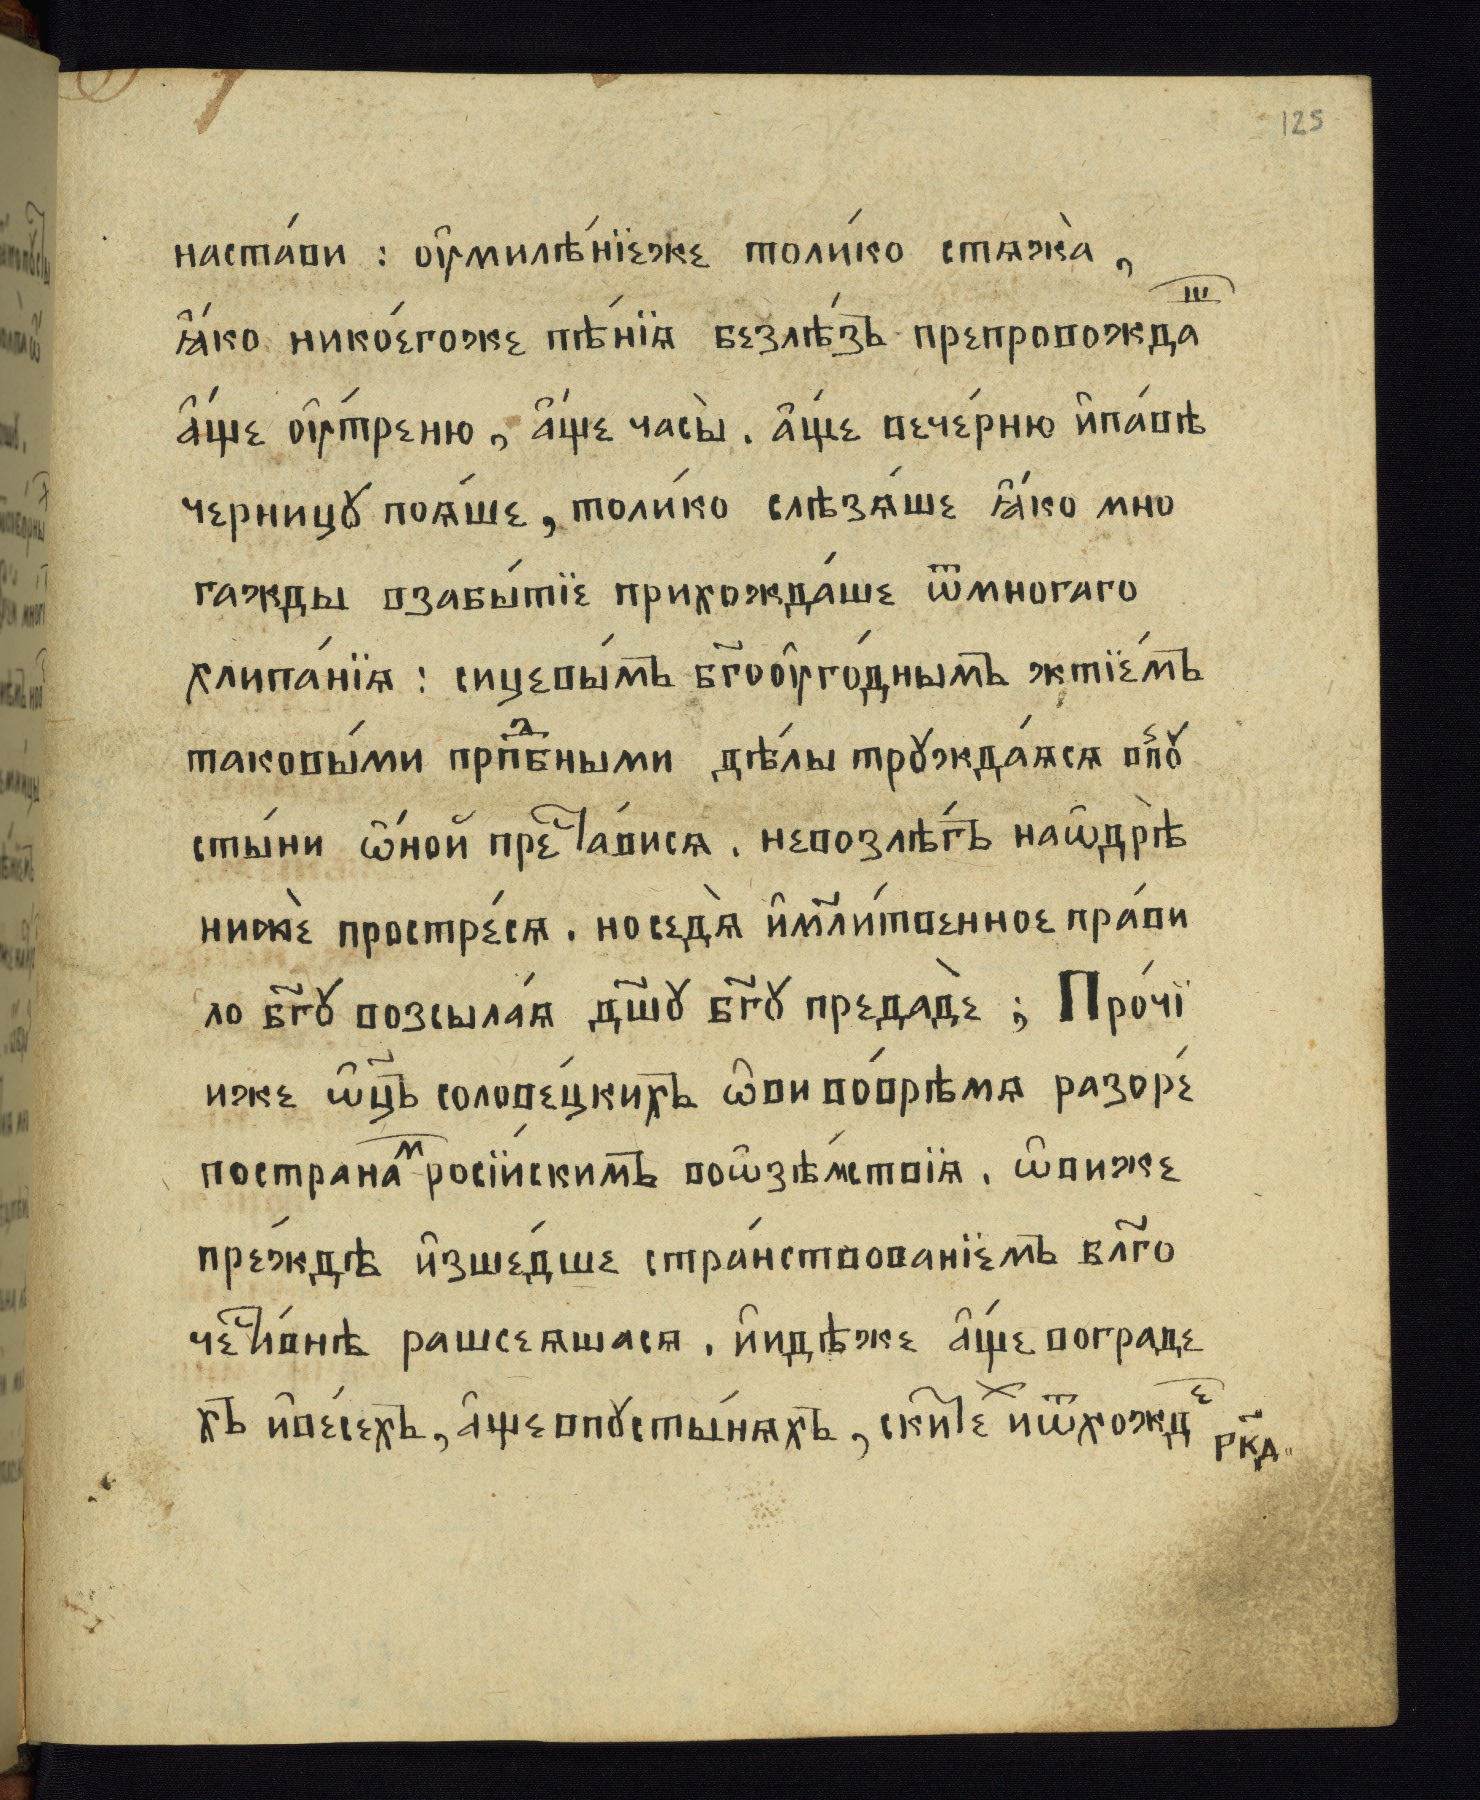 125
наста́ви : ᲂу҆миле́нїеже толи́ко стѧжа̀ ,
ꙗ҆́ко нико́егоже пѣ́нїѧ безлѣ́зъ препровождаⷲ
а҆́ще ᲂу҆́треню , а҆́ще часы̀ . а҆́ще вече́рню и҆па́вѣ
черницꙋ поѧ́ше , толи́ко слѣзѧ́ше ꙗ҆́ко мно
гажды взабы́тїе прихожда́ше ѿмногаго
хлипа́нїѧ : сицевы́мъ бг҃оᲂу҆го́днымъ жтїе́мъ
таковы́ми прпⷣбными дѣ́лы трꙋжда́ѧсѧ впꙋ
сты́ни ѻ҆́ной преⷭ҇та́висѧ . невозлѣ́гъ наѻ҆дрѣ̀
нижѐ простре́сѧ . но седѧ̀ и҆мл҃и́твенное пра́ви
ло бг҃ꙋ возсыла́ѧ дш҃ꙋ бг҃ꙋ предадѐ ; Про́чї
иже ѻ҆ц҃ъ солове́цкихъ ѻ҆ви во́врѣмѧ разоре́
постранаⷨ росїи́скимъ воѻ҆зѣ́мствїѧ . ѻ҆виже
пре́ждѣ и҆зше́дше стра́нствованїемъ бл҃го
чеⷭ҇ти́внѣ рашсеѧшасѧ . и҆идѣже а҆́ще вограде
хъ и҆ве́сехъ , а҆ще впꙋсты́нѧхъ , ски҃теⷯ и҆ѿхождⷷ
рк҃д